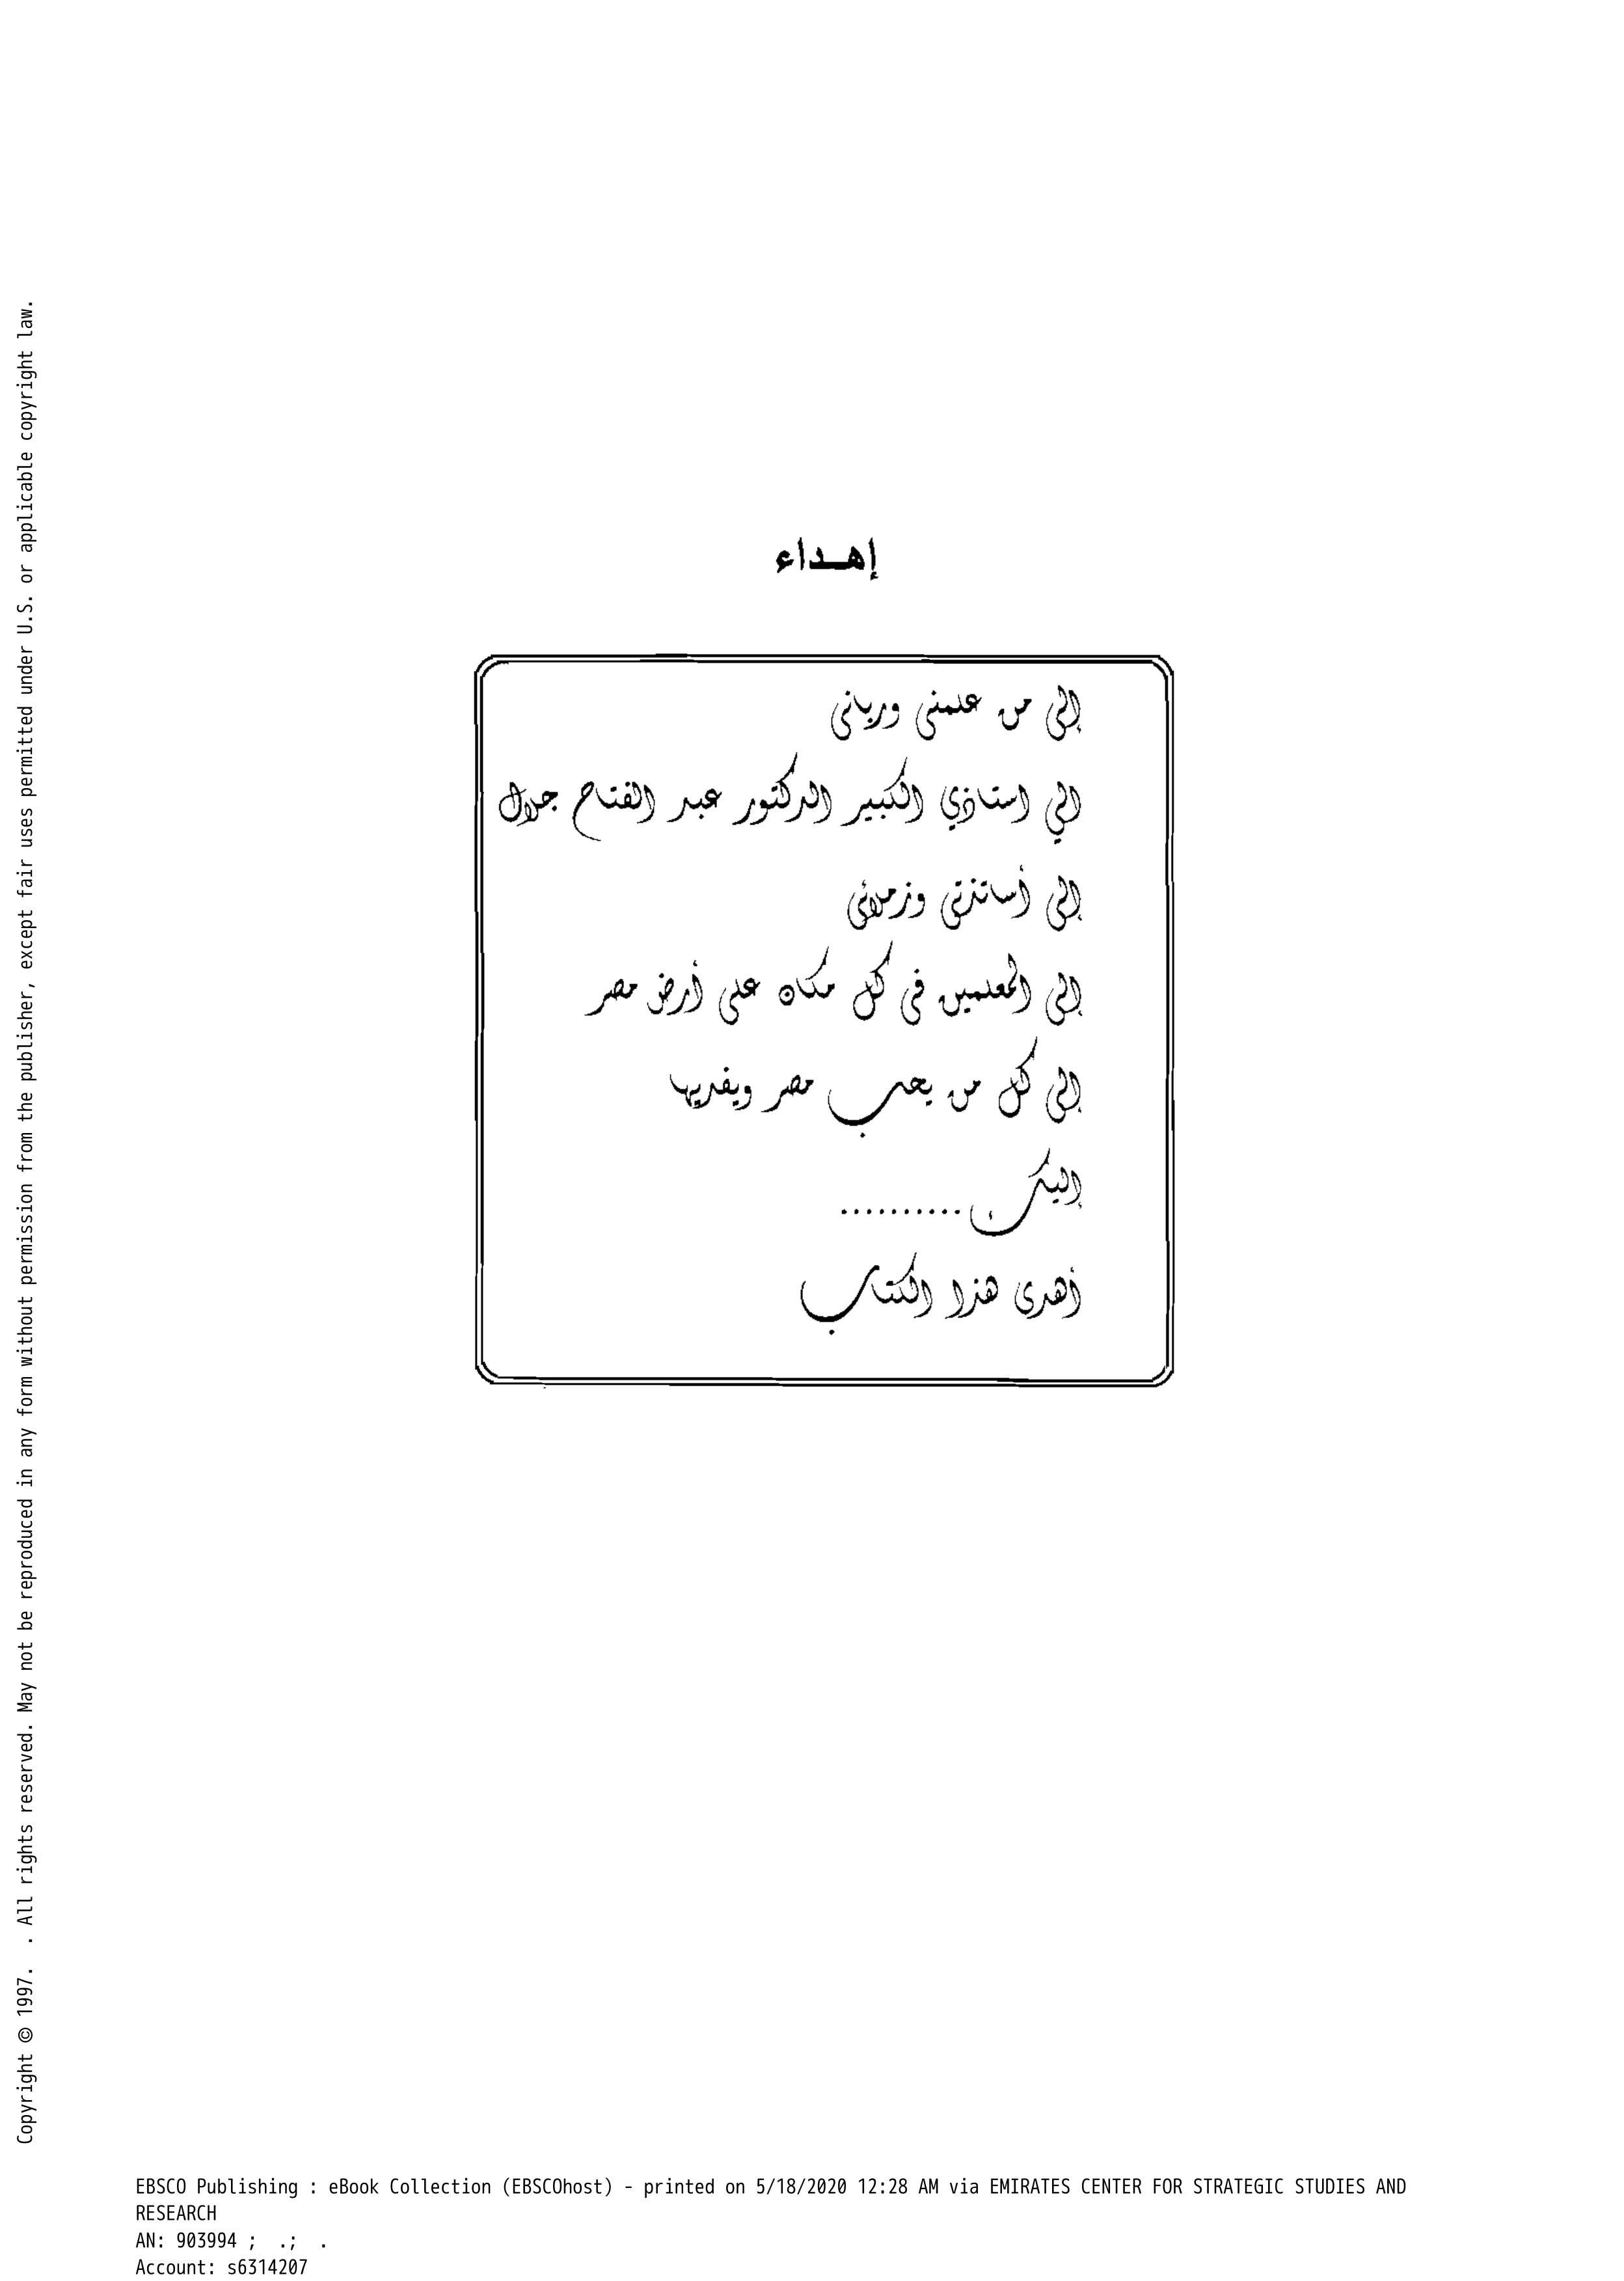 إهـداء
إلى من علمنى وربانى
الي استاذي الكبير الدكتور عبد الفتاح جلال
إلى أساتذتى وزملائى
إلى المعلمين فى كل مكان على أرض مصر
إلى كل من يحب مصر ويفديها
إليك ..........
أهدى هذا الكتاب
Copyright © 1997.  . All rights reserved. May not be reproduced in any form without permission from the publisher, except fair uses permitted under U.S. or applicable copyright law.
EBSCO Publishing : eBook Collection (EBSCOhost) - printed on 5/18/2020 12:28 AM via EMIRATES CENTER FOR STRATEGIC STUDIES AND
RESEARCH
AN: 903994 ;  .;  .
Account: s6314207